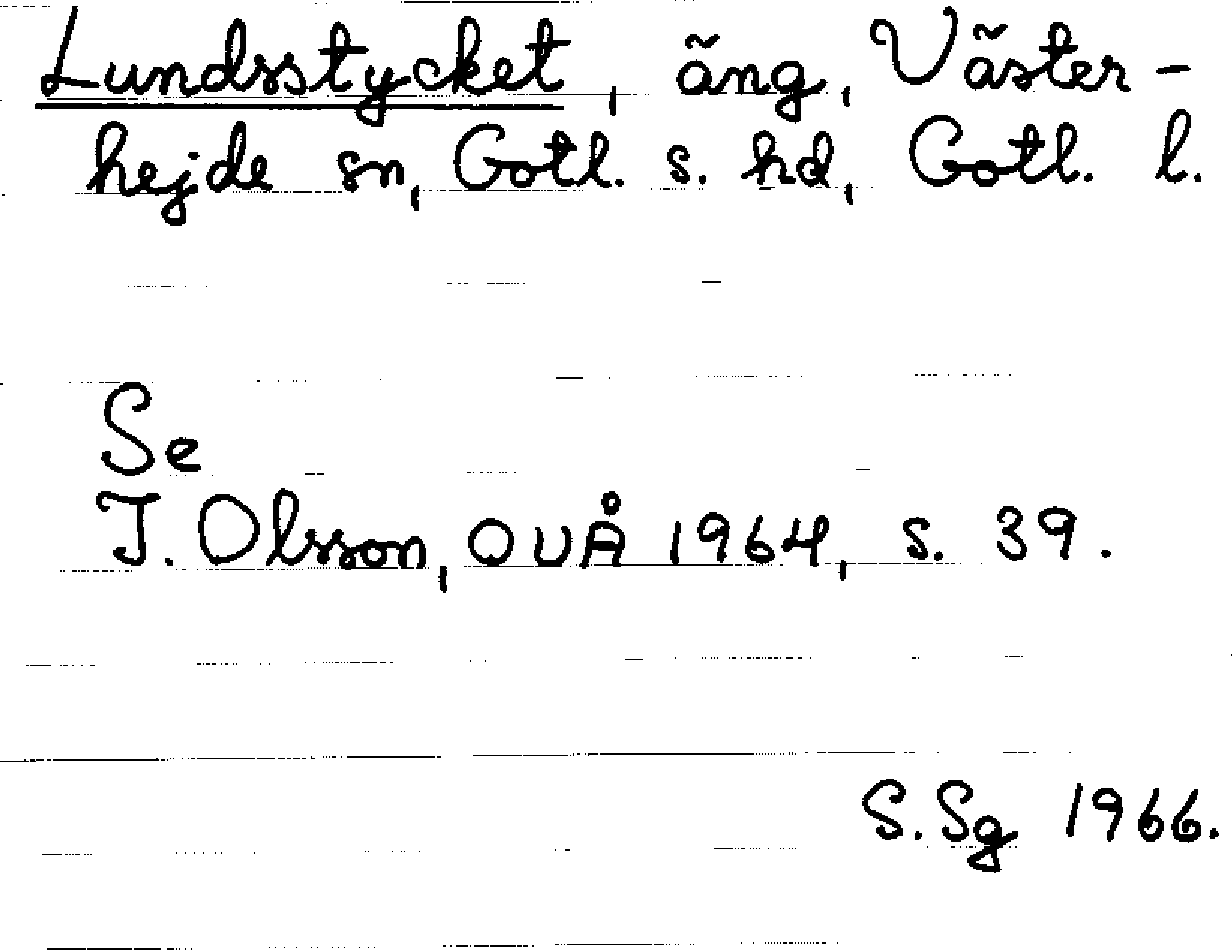 Lundsstycket, äng, Väster-
hejde sn, Gotl. s. hd, Gotl. l.
Se
I. Olsson, OUÅ 1964, s. 39.
S. Sg 1966.